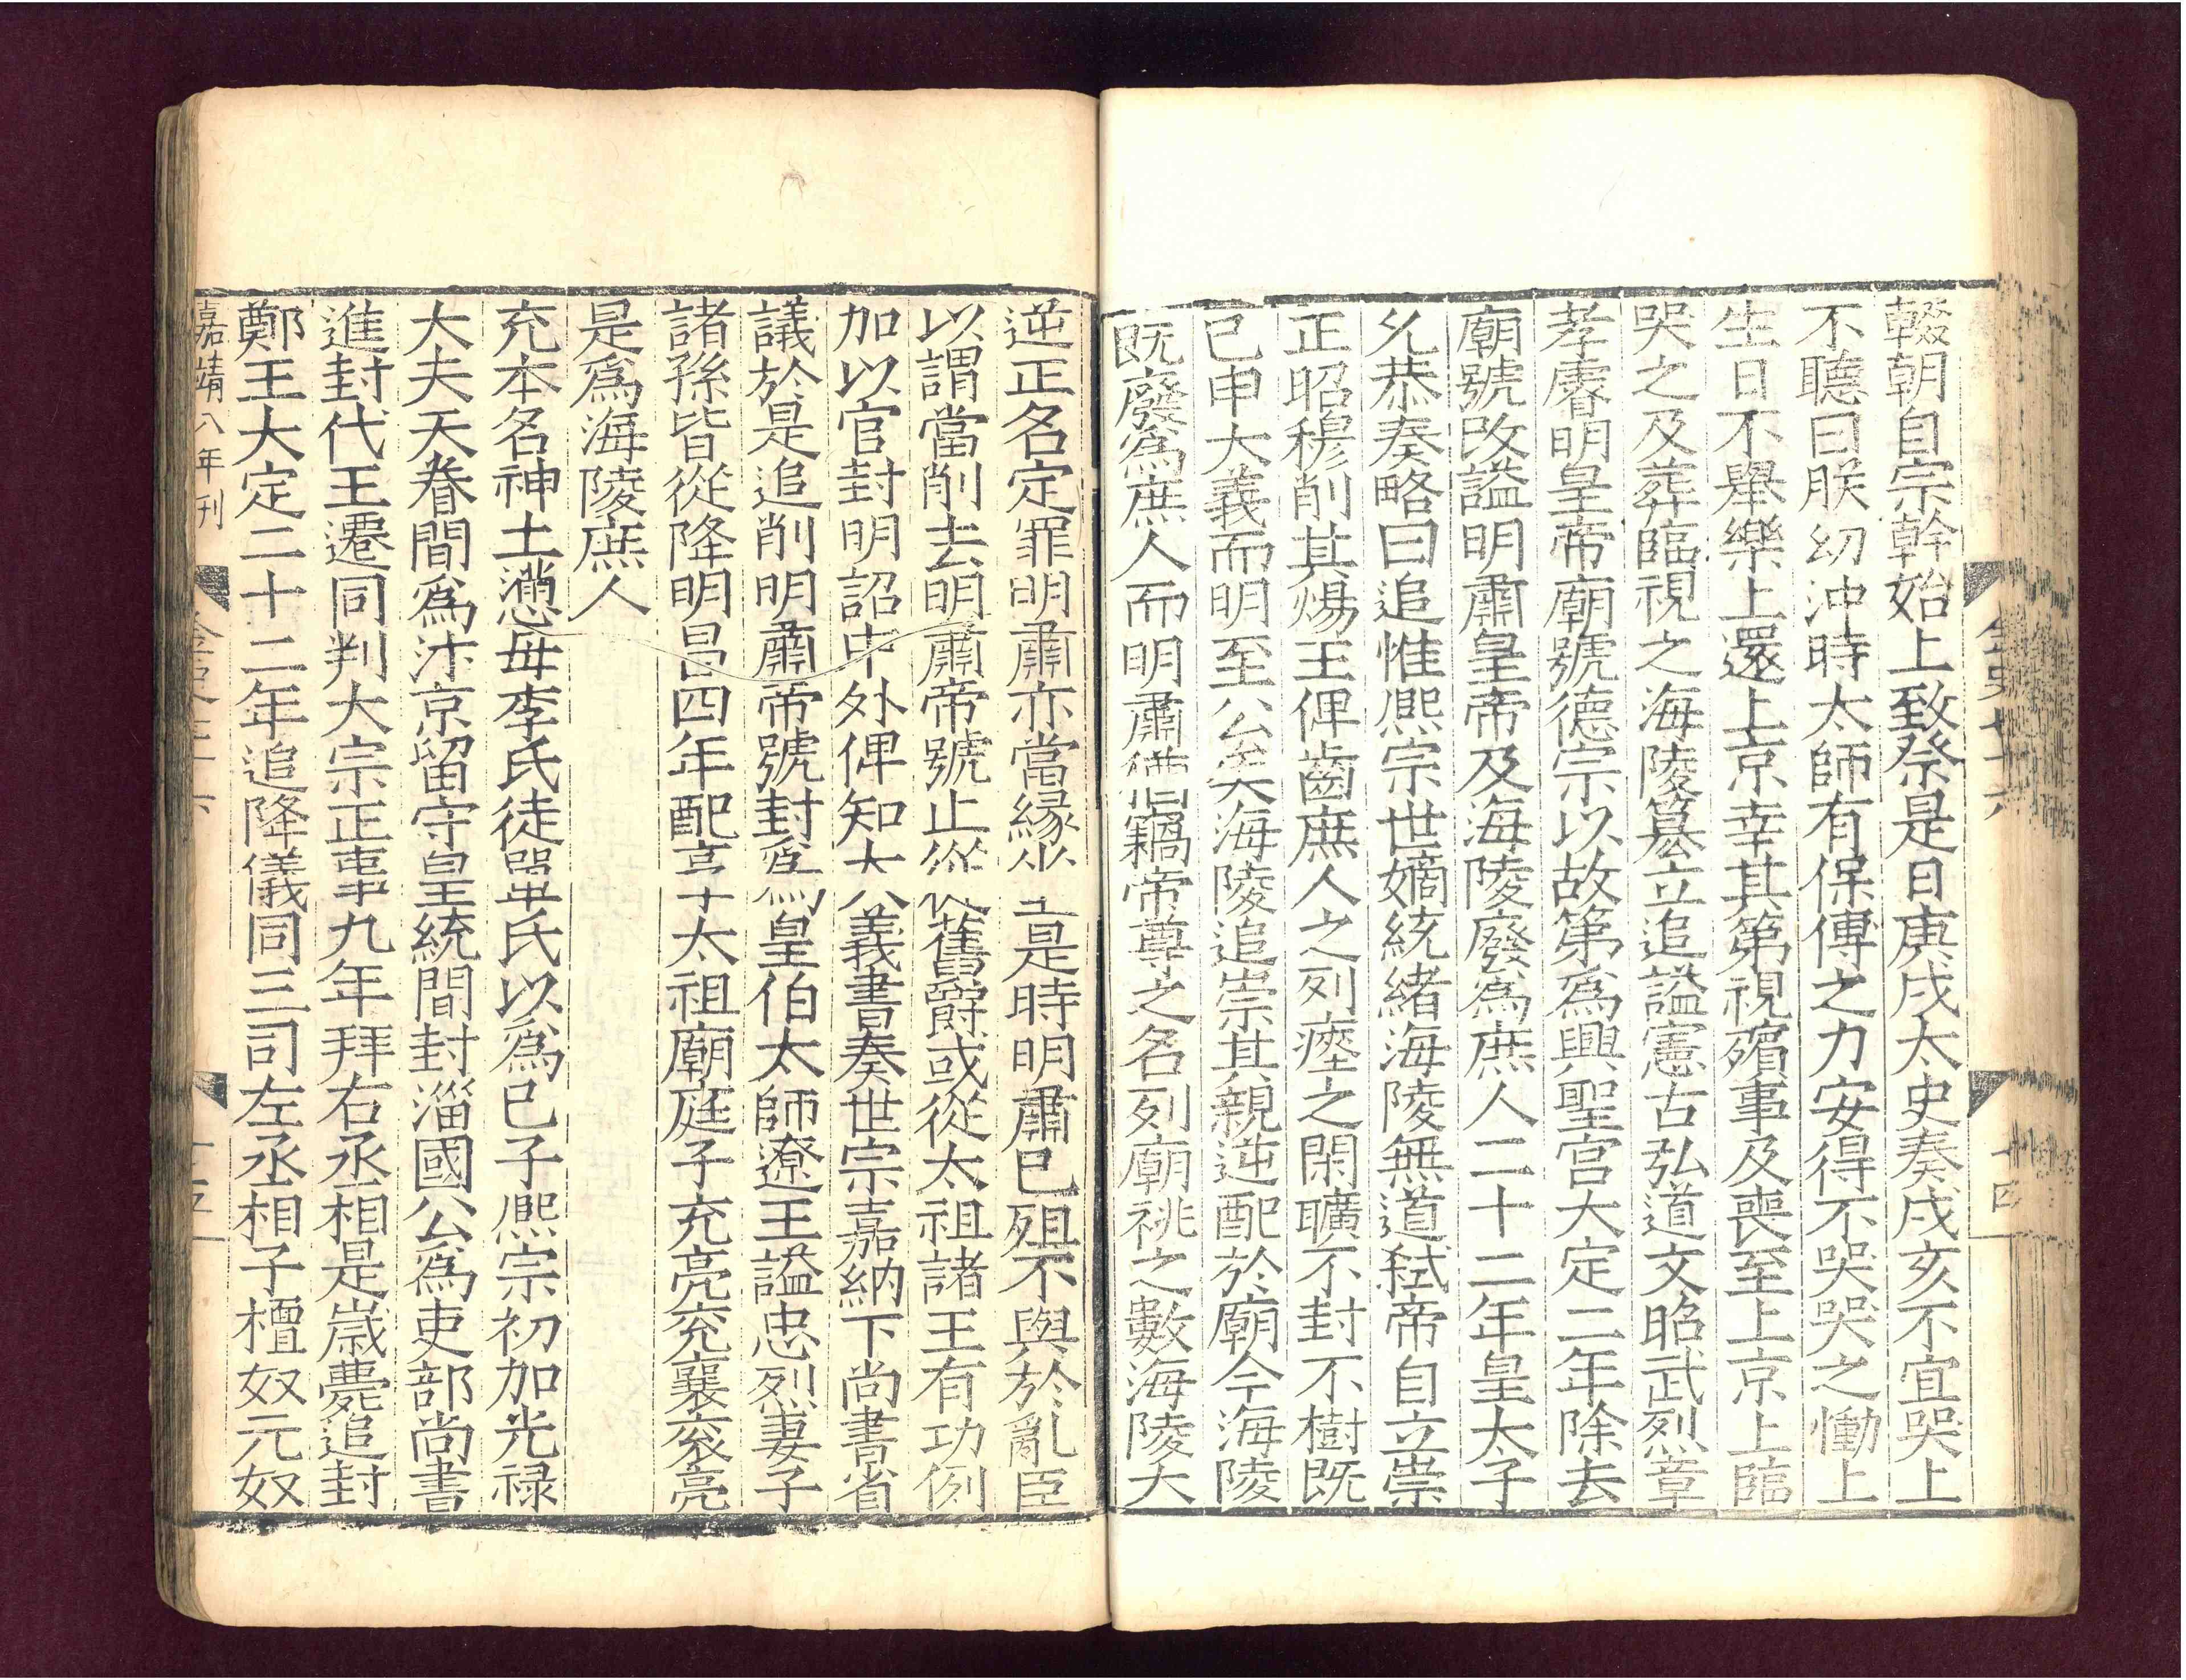 輟朝自宗幹始上致祭是日庚戌太史奏戌亥不宜哭上
不聽曰朕幼沖時太師有保傅之力安得不哭哭之慟上
生日不舉樂上還上京幸其第視殯事及喪至上京上臨
哭之及葬臨視之海陵篡立追謚憲古弘道文昭武烈章
孝睿明皇帝廟號德宗以故第爲興聖宫大定二年除去
廟號改謚明肅皇帝及海陵廢爲庶人二十二年皇太子
允恭奏略曰追惟熙宗世嫡統緒海陵無道弑帝自立崇
正昭穆削其煬王俾齒庶人之列瘞之閑曠不封不樹既
已申大義而明至公矣海陵追崇其親逆配於廟今海陵
既廢爲庶人而明肅猶竊帝尊之名列廟祧之數海陵大
金史七十六
十四
逆正名定罪明肅亦當縁坐是時明肅已殂不與於亂臣
以謂當削去明肅帝號止從舊爵或從太祖諸王有功例
加以官封明詔中外俾知大義書奏世宗嘉納下尚書省
議於是追削明肅帝號封爲皇伯太師遼王謚忠烈妻子
諸孫皆從降明昌四年配享太祖廟庭子充亮兖襄衮亮
是爲海陵庶人
充本名神土懣母李氏徒單氏以爲已子熙宗初加光禄
大夫天眷間爲汴京留守皇統間封淄國公爲吏部尚書
進封代王遷同判大宗正事九年拜右丞相是歲薨追封
鄭王大定二十二年追降儀同三司左丞相子檀奴元奴
嘉靖八年刊